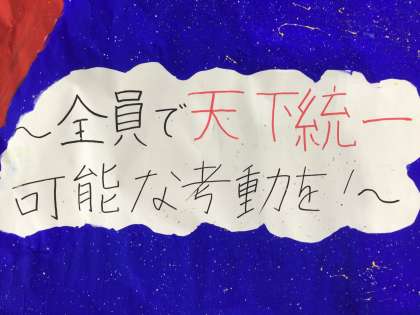 ～全員で天下統一
可能な考動を!～